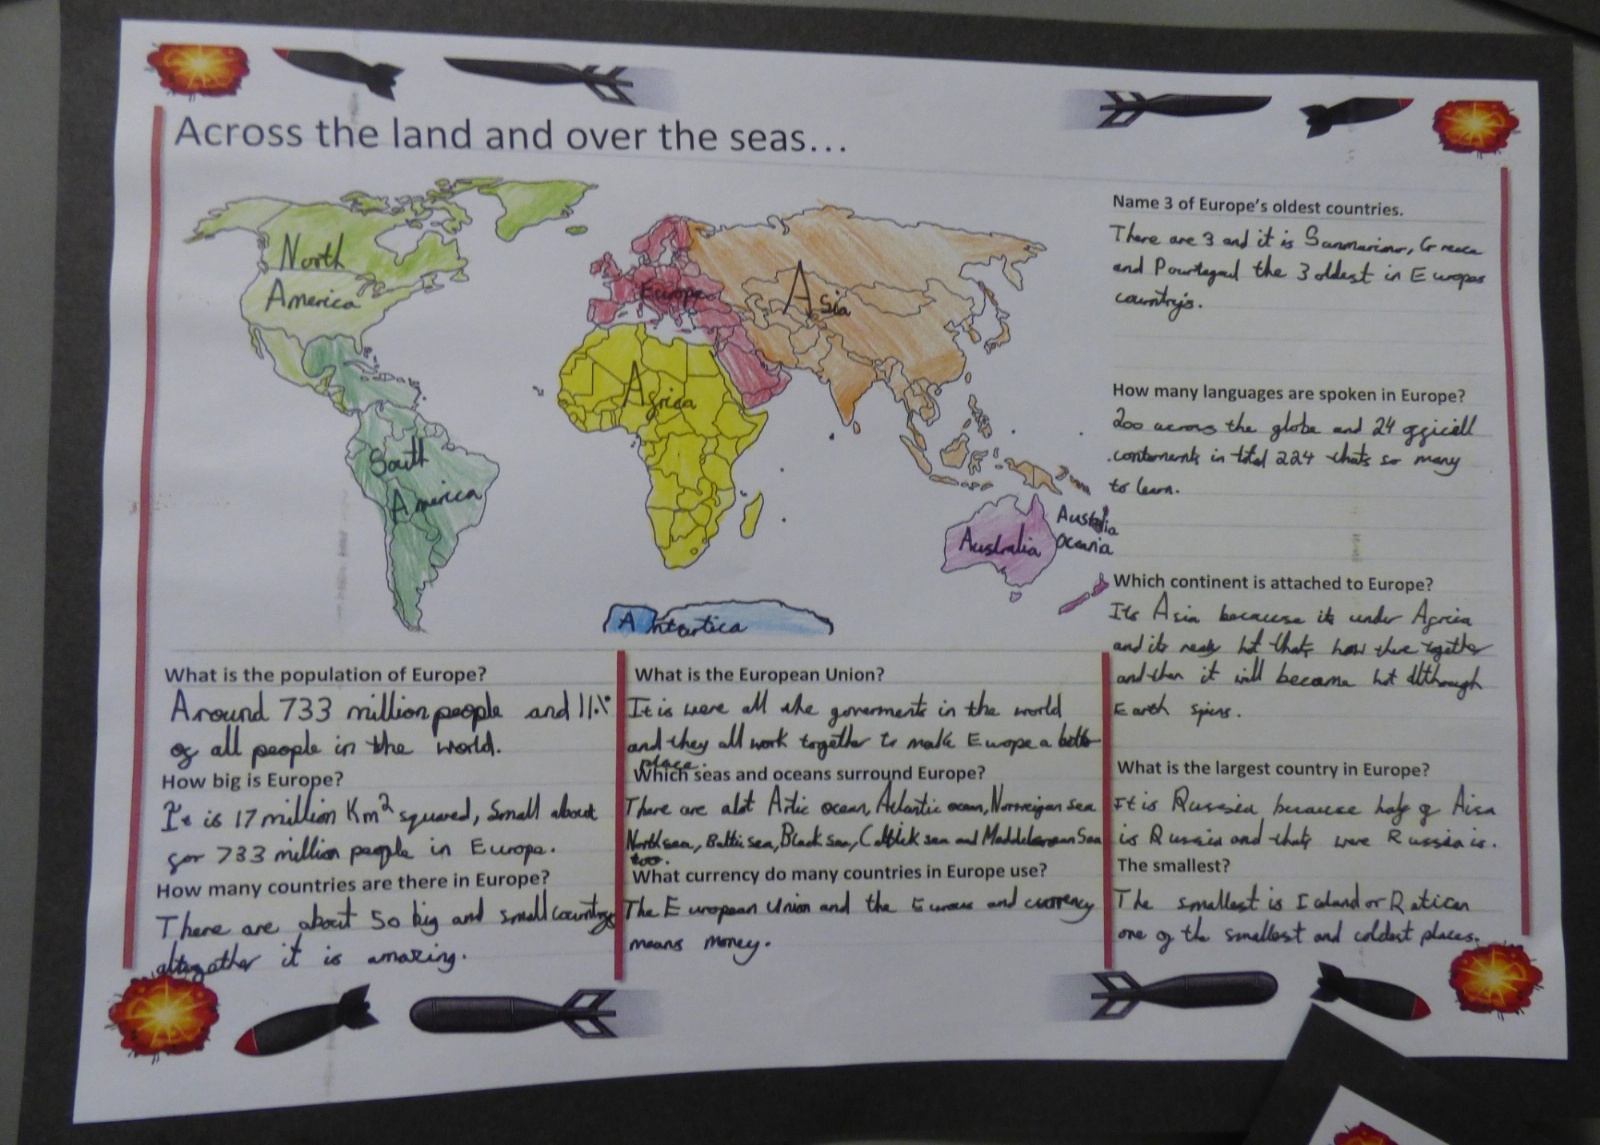 Across the land and over the seas...
North
America
South
America
Europe
Africa
Asia
Australia
Australia
Oceania
Antartica
Name 3 of Europe's oldest countries.
There are 3 and it is Sanmarinor, Greece
and Pourtagul the 3 oldest in Europes
country's.
How many languages are spoken in Europe?
200 across the globe and 24 officiall
conternents in total 224 thats so many
to learn.
Which continent is attached to Europe?
Its Asia because its under Africa
and its really hot thats how there together
and then it will become hot although
Earth spins.
What is the population of Europe?
Around 733 million people and 11%
of all people in the world.
How big is Europe?
It is 17 million Km² squared, Small about
for 733 million people in Europe.
How many countries are there in Europe?
There are about 50 big and small countrys
altogather it is amazing.
What is the European Union?
It is were all the goverments in the world
and they all work together to make Europe a better
place.
Which seas and oceans surround Europe?
There are alot Artic ocean, Atlantic ocean, Norweigan sea
North sea, Baltic sea, Black sea, sea and Sea
too.
What currency do many countries in Europe use?
The European Union and the and currency
means money.
What is the largest country in Europe?
It is Russia because half of Aisa
is Russia and thats were Russia is.
The smallest?
The smallest is Iceland or
one of the smallest and coldest places.